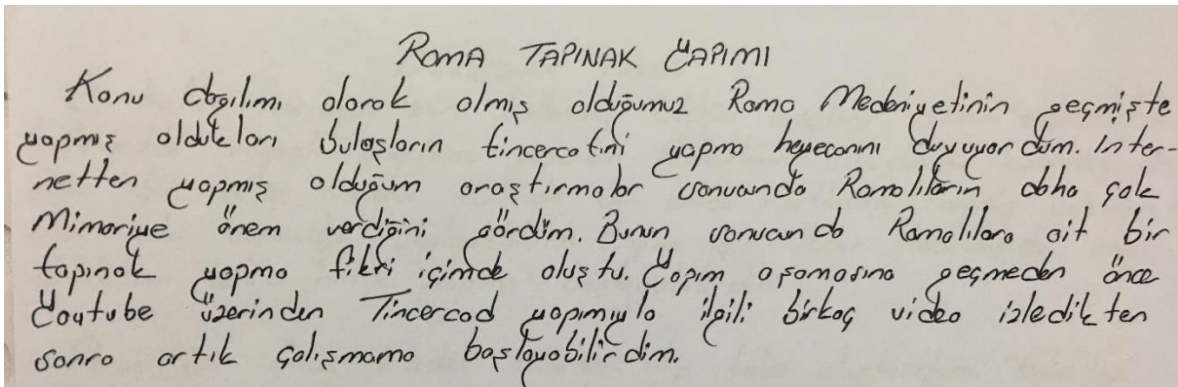 ROMA TAPINAK YAPIMI
Konu dağılımı olarak almış olduğumuz Roma Medeniyetinin geçmişte
yapmış oldukları buluşların tincercatini yapma heyecanını duyuyordum. Inter-
netten yapmış olduğum araştırmalar sonucunda Romalıların daha çok
Mimariye önem verdiğini gördüm. Bunun sonucunda Romalılara ait bir
tapınak yapma fikri içimde oluştu. Yapım aşamasına geçmeden önce
Youtube üzerinden Tincercad yapımıyla ilgili birkaç video izledikten
sonra artık çalışmama başlayabilirdim.